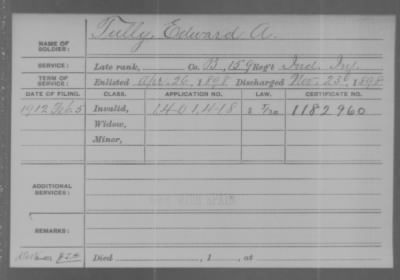 Tully, Edward A.
NAME OF SOLDIER:
SERVICE: Late rank, Co. B, 159 Reg't Ind. Inf.
TERM OF SERVICE: Enlisted Apr. 26, 1898 Discharged Nov. 23, 1898
DATE OF FILING. CLASS. APPLICATION NO. LAW. CERTIFICATE NO.
1912 Feb 5 Invalid, 1401418 1182960
Widow,
Minor,
ADDITIONAL SERVICES:
WAR WITH SPAIN
REMARKS:
Died , 1 , at